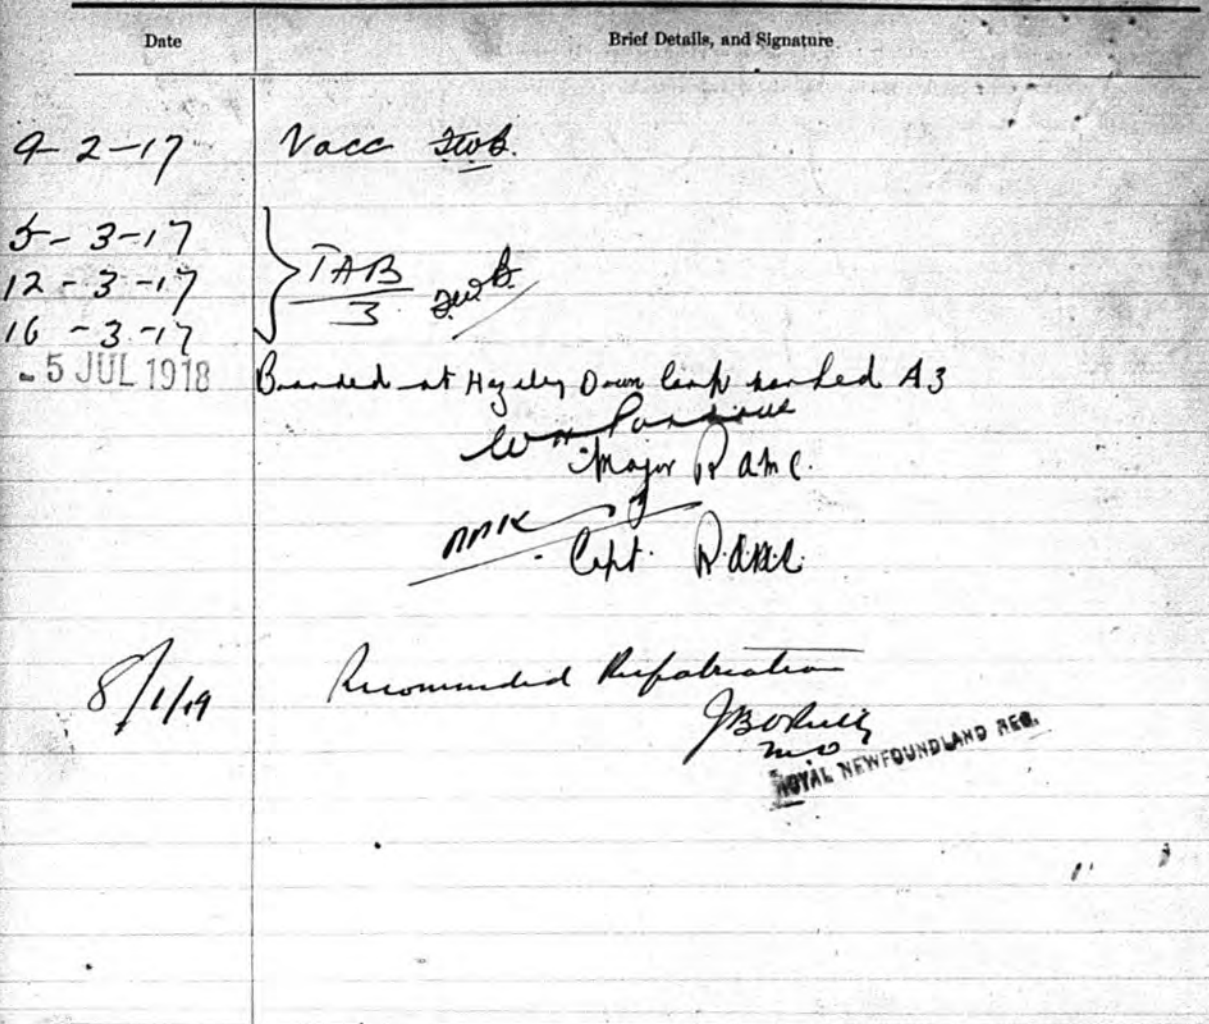 Date Brief Details, and Signature
9-2-17 Vacc
5-3-17
12-3-17 TAB
3
16-3-17
5 JUL 1918 Boarded at Hazeley Down Camp marked A3
Major R.A.M.C.
Capt. R.A.M.C.
8/1/19 Recommended Repatriation
M.O
ROYAL NEWFOUNDLAND REG.